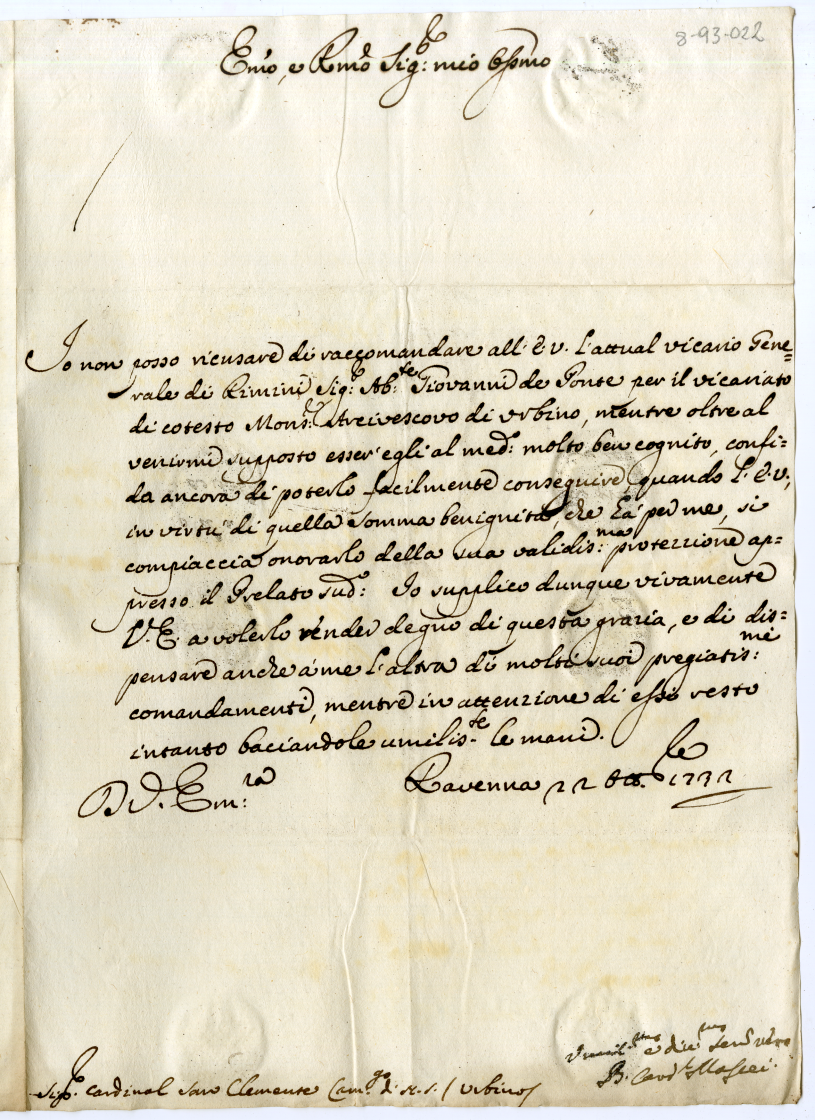 8-93-022
Em̃o, e Rm̃o Sig:r mio Oss̃mo
Io non posso ricusare di raccomandare all'E.V. l'attual vicario Gene=
rale di Rimini Sig:r Ab:te Giovanni de Ponte per il vicariato
di cotesto Mons:r Arcivescovo di Urbino, mentre oltre al
venirmi supposto esser'egli al med:o molto ben cognito, confi=
da ancora di poterlo facilmente conseguire quando l'E.V.,
in virtù di quella somma benignità, che hà per me, si
compiaccia onorarlo della sua validis:ma protezzione ap=
presso il Prelato sud:o Io supplico dunque vivamente
V.E. a volerlo render degno di questa grazia, e di dis=
pensare anche à me l'altra di molti suoi pregiatis:mi
comandamenti, mentre in attenzione di essi resto
intanto baciandole umilis:te le mani.
D V. Em:za Ravenna 22 1732
Umil:mo
B. Card:l Massei
Sig:r Cardinal San Clemente (Urbino)